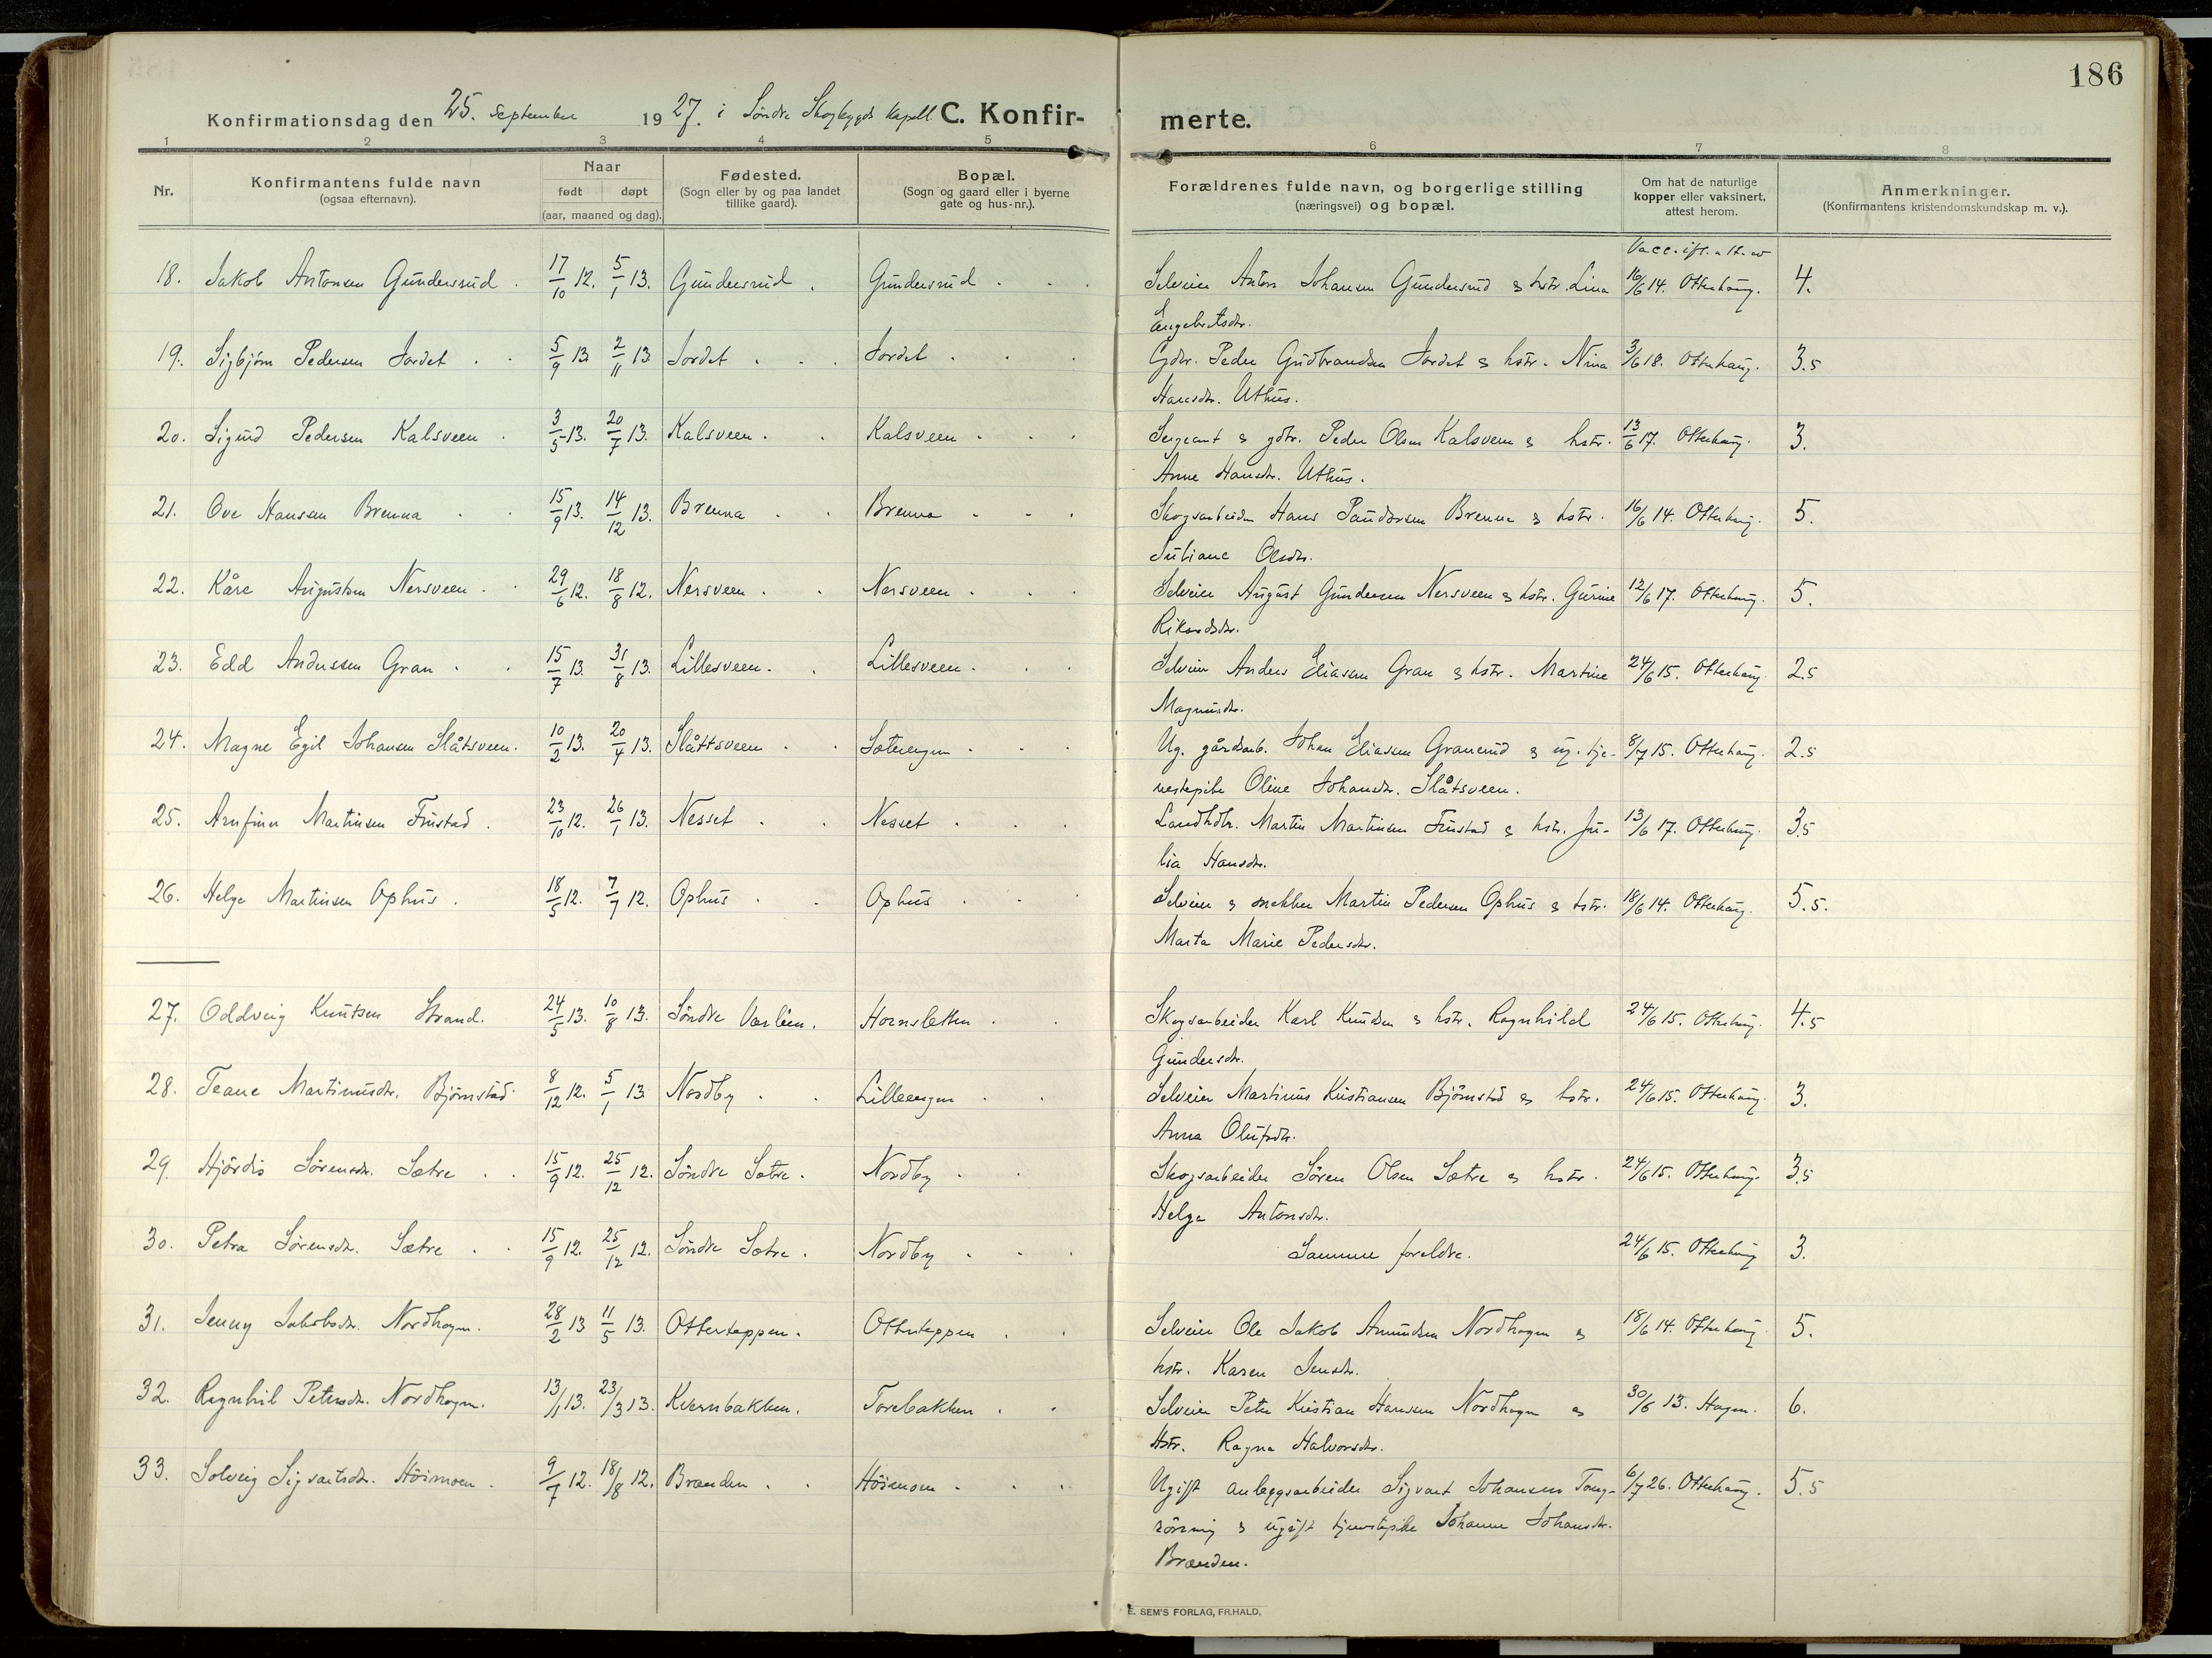 186
Konfirmationsdag den 25. September 1927. i Søndre Skogbygds kapell C. Konfir-
merte.
1 2 3 4 5 6 7 8
Nr.
Konfirmantens fulde navn
(ogsaa efternavn).
Naar
født døpt
(aar, maaned og dag).
Fødested.
(Sogn eller by og paa landet
tillike gaard).
Bopæl.
(Sogn og gaard eller i byerne
gate og hus-nr.).
Forældrenes fulde navn, og borgerlige stilling
(næringsvei) og bopæl.
Om hat de naturlige
kopper eller vaksinert,
attest herom.
Anmerkninger.
(Konfirmantens kristendomskundskap m. v.).
Vacc. ifl. att. av
18. Jakob Antonsen Gundersrud. 17/10 12. 5/1 13. Gundersrud. Gundersrud. Selveier Anton Johansen Gundersrud & hstr. Lina 16/6 14. Otterhaug. 4.
Engebretsdtr.
19. Sigbjørn Pedersen Jordet. 5/9 13 2/11 13 Jordet. Jordet. Gdbr. Peder Gudbrandsen Jordet & hstr. Nina 3/6 18. Otterhaug. 3.5
Hansdtr. Uthus.
20. Sigurd Pedersen Kalsveen. 3/5 13. 20/7 13. Kalsveen. Kalsveen. Sergeant & gdbr. Peder Olsen Kalsveen & hstr. 13/6 17. Otterhaug. 3.
Anne Hansdtr. Uthus.
21. Ove Hansen Brenna 15/9 13. 14/12 13. Brenna Brenna Skogsarbeider Hans Paudersen Brenna & hstr. 16/6 14. Otterhaug. 5.
Juliane Olsdtr.
22. Kåre Augustsen Nersveen. 29/6 12. 18/8 12. Nersveen. Nersveen. Selveier August Gundersen Nersveen & hstr. Gurine 12/6 17. Otterhaug. 5.
Rikardsdtr.
23. Edd Anderssen Gran. 15/7 13. 31/8 13. Lillesveen. Lillesveen. Selveier Anders Eliasen Gran & hstr. Martine 24/6 15. Otterhaug. 2.5
Magnusdtr.
24. Magne Egil Johansen Slåtsveen. 10/2 13. 20/4 13. Slåttsveen. Sæterengen. Ug. gårdsarb. Johan Eliasen Granerud & ug. tje- 8/7 15. Otterhaug. 2.5
nestepike Oline Johansdtr. Slåtsveen.
25. Arnfinn Martinsen Frustad. 23/10 12. 26/1 13. Nesset. Nesset. Landhdlr. Martin Martinsen Frustad & hstr. Ju- 13/6 17. Otterhaug. 3.5
lia Hansdtr.
26. Helge Martinsen Ophus. 18/5 12. 7/7 12. Ophus. Ophus. Selveier & snekker Martin Pedersen Ophus & hstr. 18/6 14. Otterhaug. 5.5.
Marta Marie Pedersdtr.
27. Oddveig Knutsen Strand. 24/5 13. 10/8 13. Søndre Varlien. Hornsletten. Skogsarbeider Karl Knudsen & hstr. Ragnhild 24/6 15. Otterhaug. 4.5
Gundersdtr.
28. Teane Martinusdtr. Bjørnstad. 8/12 12. 5/1 13. Nordby. Lilleengen. Selveier Martinus Kristiansen Bjørnstad & hstr. 24/6 15. Otterhaug. 3.
Anna Olufsdtr.
29. Hjørdis Sørensdtr. Sætre. 15/9 12. 25/12 12. Søndre Sætre. Nordby. Skogsarbeider Søren Olsen Sætre & hstr. 24/6 15. Otterhaug. 3.5
Helga Antonsdtr.
30. Petra Sørensdtr. Sætre. 15/9 12. 25/12 12. Søndre Sætre. Nordby. Samme foreldre. 24/6 15. Otterhaug 3.
31. Jenny Jakobsdtr. Nordhagen. 28/2 13 11/5 13. Otterteppen. Otterteppen. Selveier Ole Jakob Amundsen Nordhagen & 18/6 14. Otterhaug. 5.
hstr. Karen Jensdtr.
32. Ragnhil Petersdtr. Nordhagen. 13/1 13. 23/3 13. Kvernbakken. Torebakken. Selveier Peter Kristian Hansen Nordhagen & 30/6 13. Hagen. 6.
Hstr. Ragna Halvorsdtr.
33. Solveig Sigvartsdtr. Høismoen. 9/7 12. 18/8 12. Brænden. Høismoen. Ugift anleggsarbeider Sigvart Johansen Tang- 6/7 26. Otterhaug. 5.5
røning & ugift tjenestepike Johanne Johansdtr.
Brænden.
E. SEM'S FORLAG, FR.HALD,